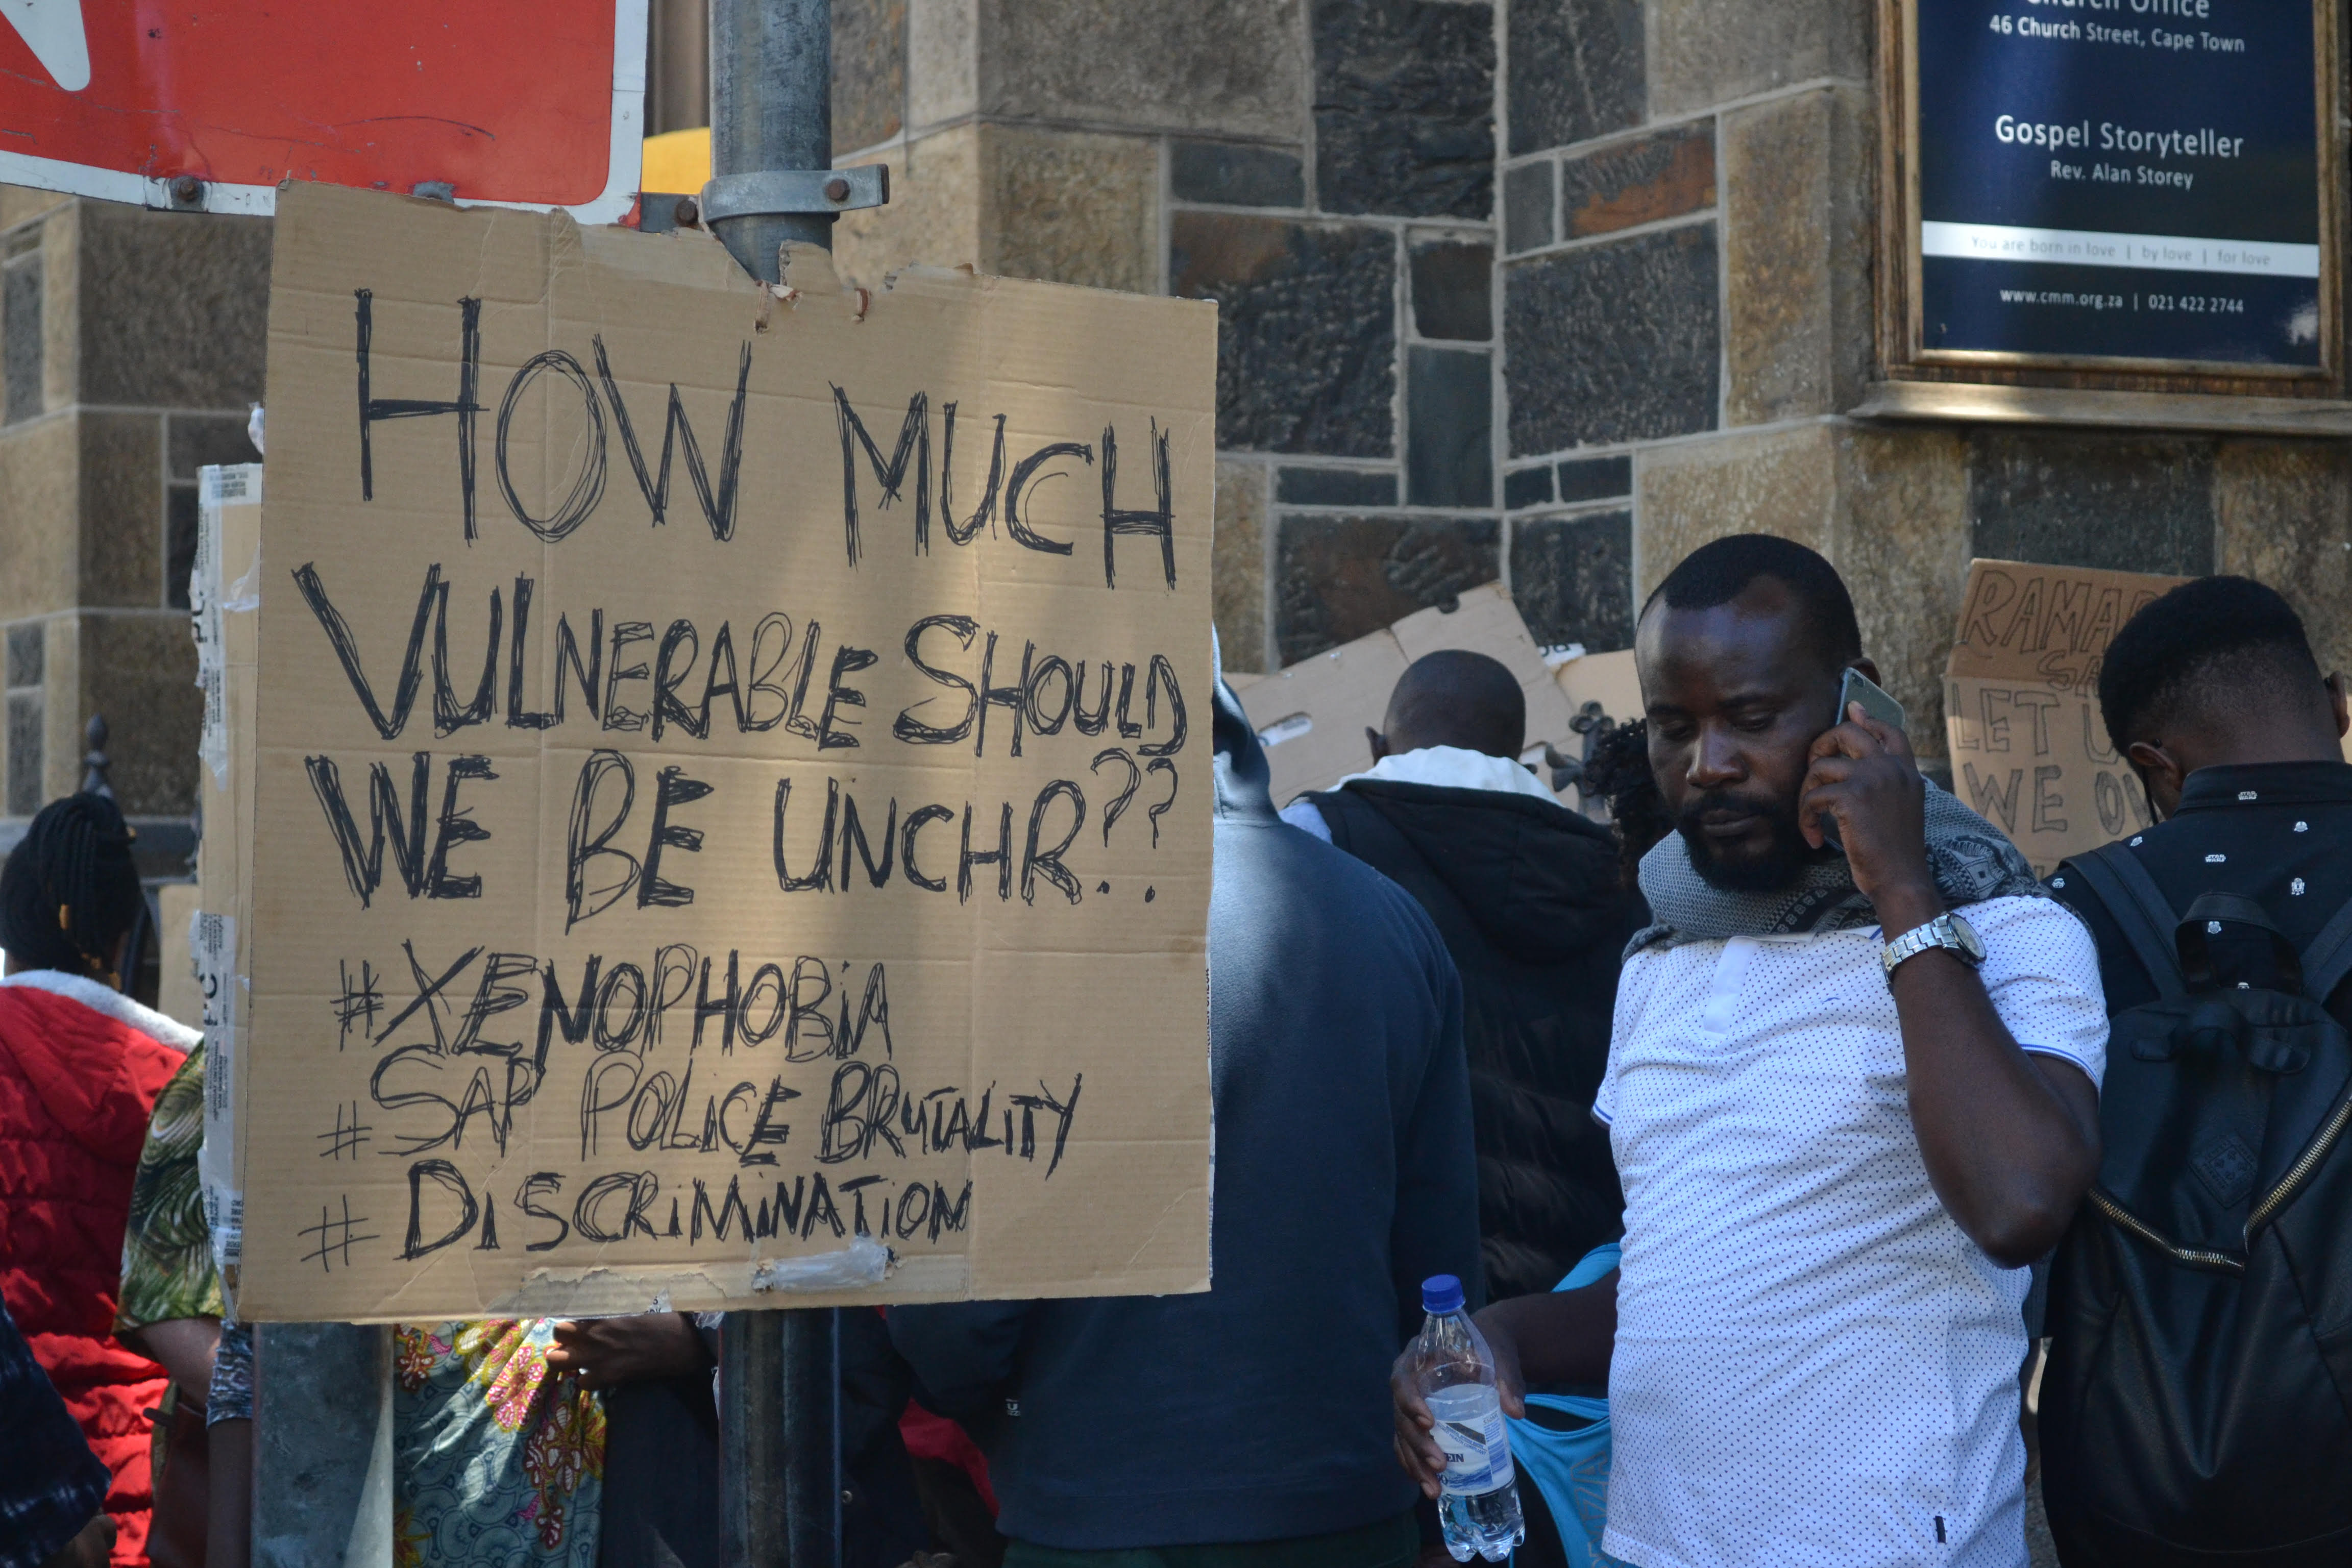 HOW MUCH
VULNERABLE SHOULD
WE BE UNCHR??
#XENOPHOBiA
# SAP POLiCE BRUTALITY
# DiSCRiMiNATiON
Church Office
46 Church Street, Cape Town
Gospel Storyteller
Rev. Alan Storey
You are born in love | by love | for love
www.cmm.org.za | 021 422 2744
LET
WE
STAR WARS